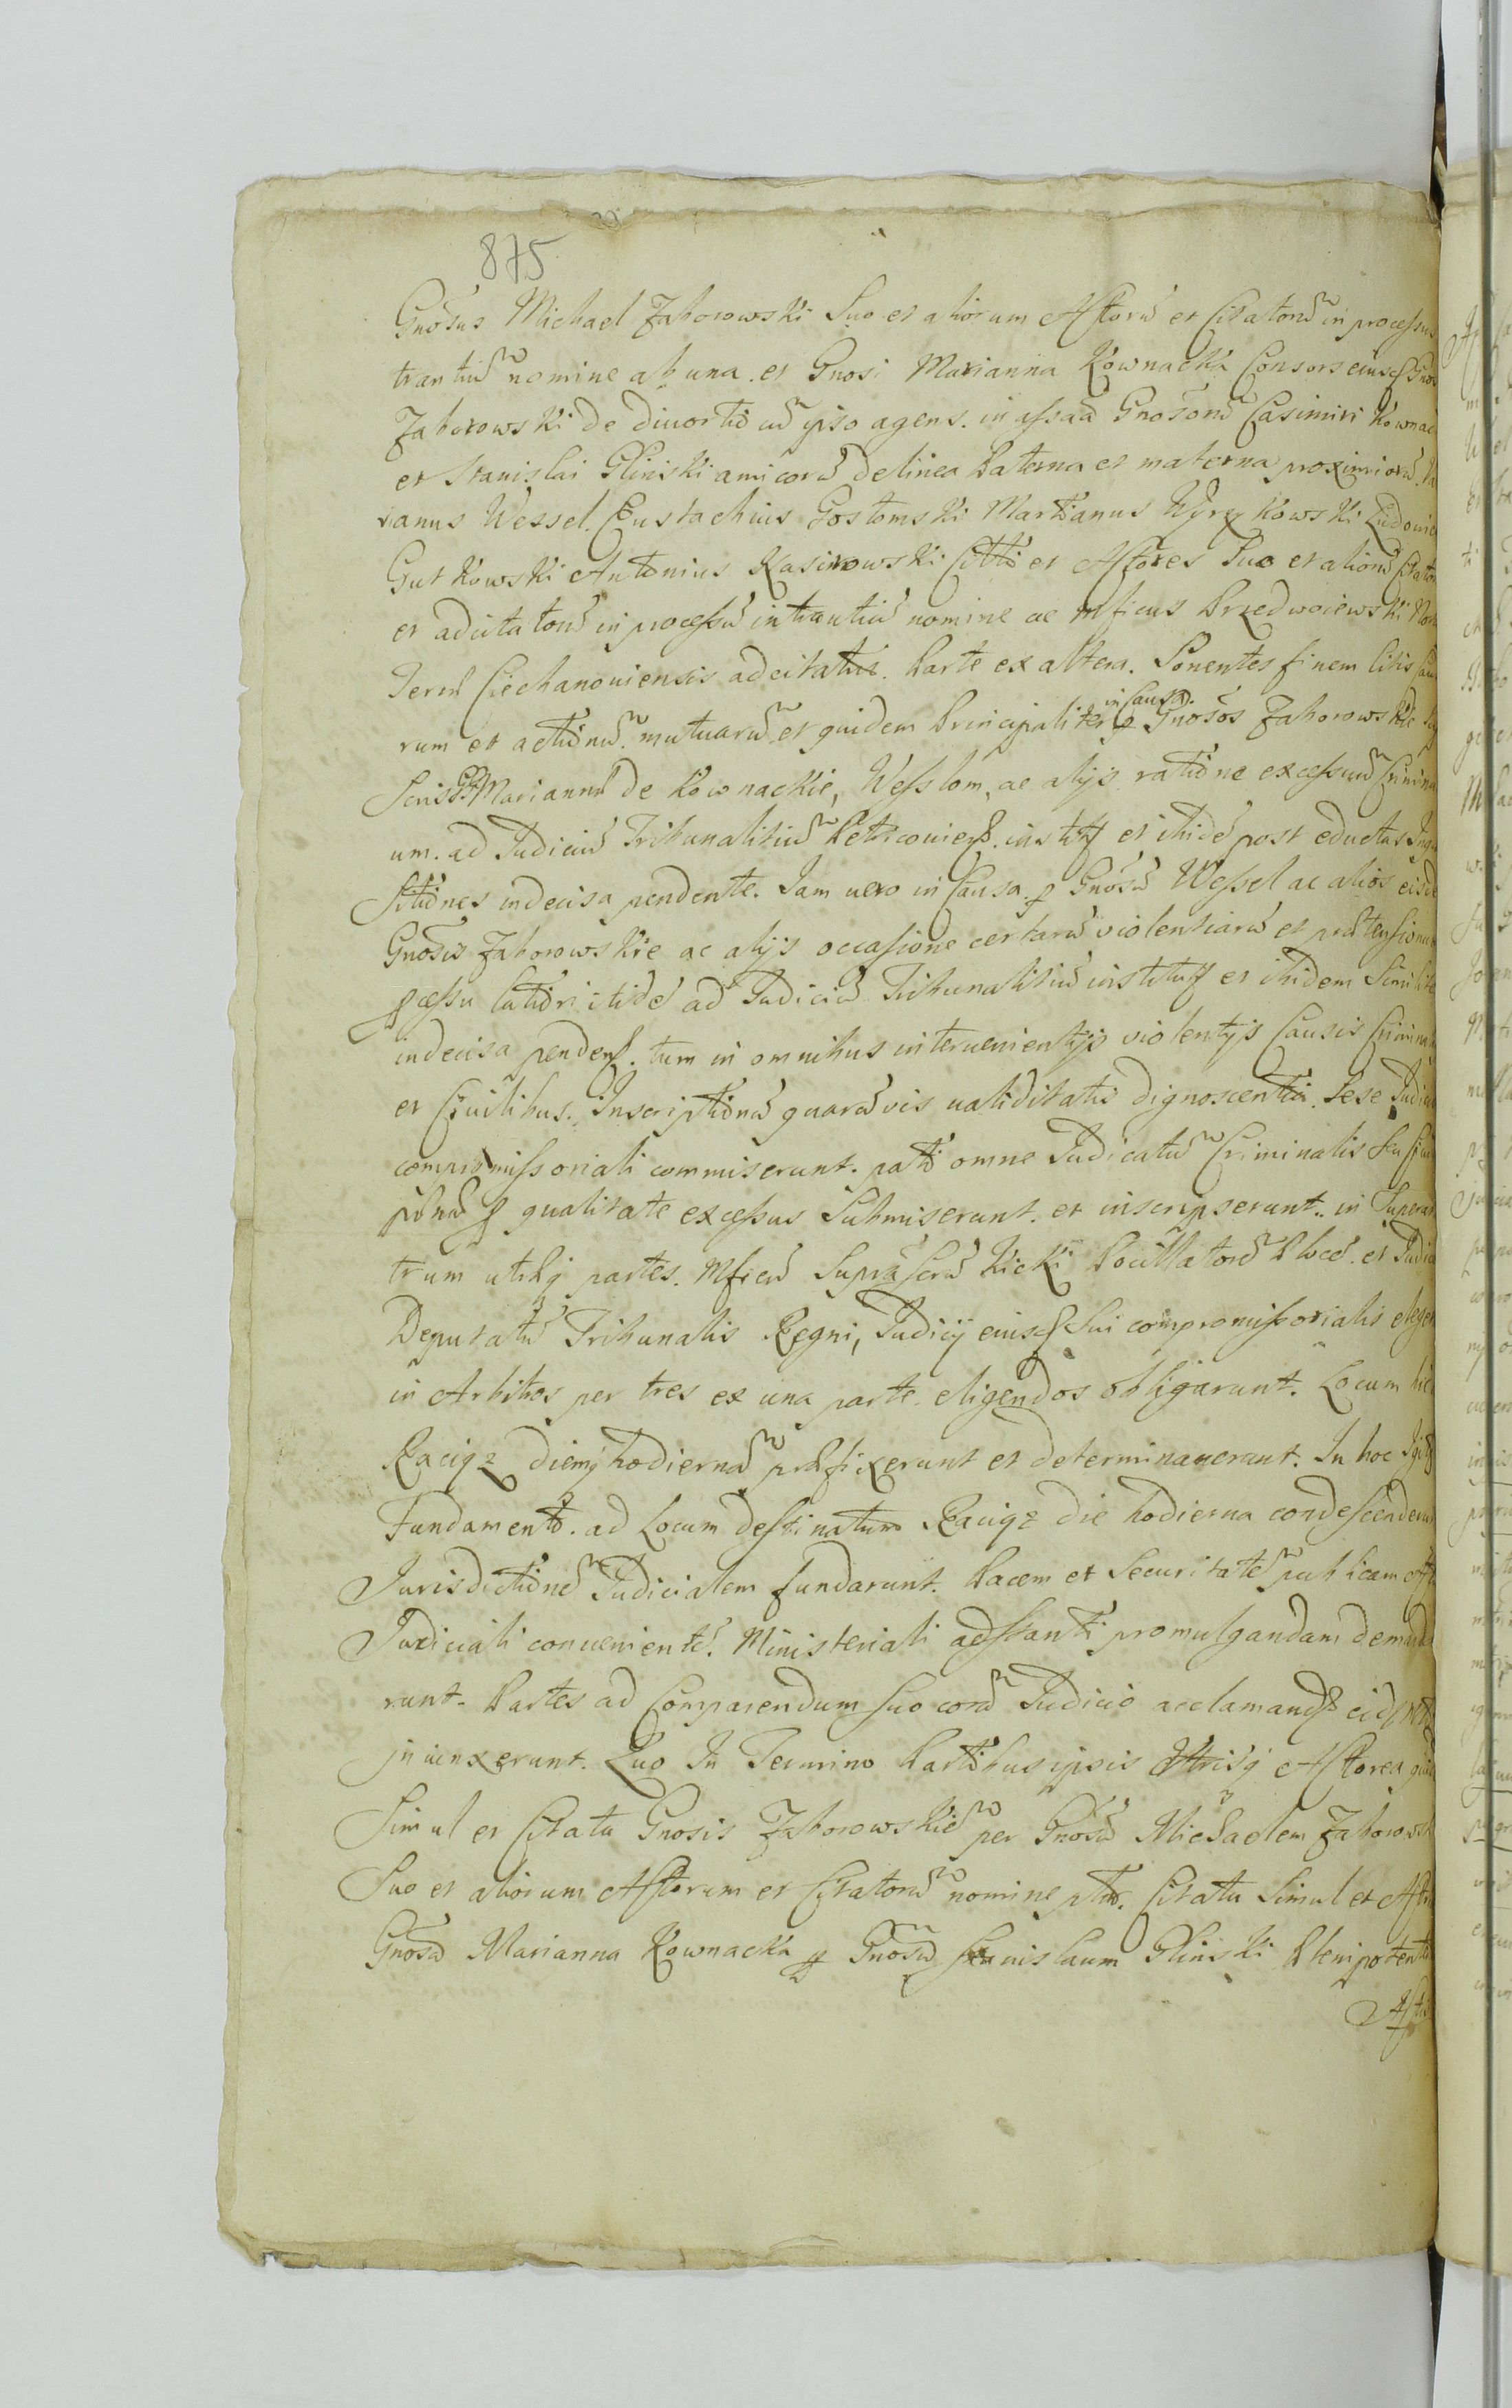 875
Gnosus Michael Zaborowski Suo et aliorum Actorũ et Citatorũ in processu
trantiũ nomine ab una. et Gnosi Marianna Kownacka Consors eiusd Gnosi
Zaborowski de divortio cũ ipso agens. in assa Gnosorũ Casimiri Kownac
et Stanislai Glinski amicorũ de linea Paterna et materna proximiorũ.
rianus Wessel. Eustachius Gostomski Martianus Wyrzykowski Ludovic
Gutkowski Antonius Kasinowski Citti et Actores Suo et aliorũ Citator
et adcitatorũ in processũ intrantiũ nomine ac Mficus Przedwoiewski Not
Terrs Ciechanoviensis adcitatus. Parte ex altera. Ponentes finem litis
rum et actionũ. mutuarũ et quidem Principaliter in Causa. p Gnosos Zaborowskie
Marianna de Kownackie, Wesslom, ac alijs ratione excessuũ Crimina
um. ad Judiciũ Tribunalitiũ Petricoviens. instit et ibidẽ post eductas Inqui
sitiones indecisa pendente. Jam vero in Causa. p Gnosũ Wessel ac alios eisd
Gnosis Zaborowskie ac alijs occasione certarũ violentiarũ et prætensionũ
itidẽ ad Judiciũ Tribunalitiũ institut et ibidem Similite
indecisa pendens. tum in omnibus intervenientijs violentijs Causis Crimina
et Civilibus. Inscriptionũ quarũvis validitatis dignoscentia. Sese Judici
compromissoriali commiserunt. omne Judicatũ Criminalis Seu
qualitate excessus Submiserunt. et inscripserunt. in Superar
trum utrq partes. Mficũ Supra Kicki Pocillatorẽ Plocẽ. et Judic
Deputatũ Tribunalis Regni, Judicij eiusd Sui compromissorialis eleger
in Arbitros per tres ex una parte eligendos obligarunt. Locum hic
Raciąz diemq hodiernã præfixerunt et determinaverunt. In hoc Igit
Fundamento. ad Locum destinatum Raciąz die hodierna condescenderu
Jurisdictionẽ Judicialem fundarunt. Pacem et Securitatẽ publicam
Judiciali convenientẽ. Ministeriali adstanti promulgandam demanda
runt. Partes ad Comparendum Suo corã Judicio acclamand
iniunxerunt. Quo In Termino Partibus ipsis Utrisq Actorea
Simul et Citata Gnosis Zaborowskie per Gnosũ Michaelem Zaborowsk
Suo et aliorum Actorum et Citatorũ nomine. Citata Simul et
Gnosa Marianna Kownacka p Gnosũ Stanislaum Glinski Plenipotent